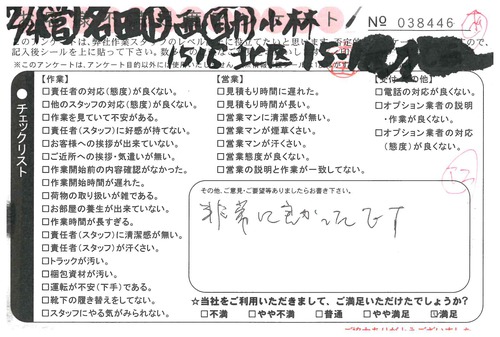 № 038446
このアンケートは、弊社作業スタッフのレベル
記入後シールを上に貼って下さい。
※このアンケートは、アンケート目的以外には使用いたしません。
チェックリスト
【作業】
□責任者の対応(態度)が良くない。
□他のスタッフの対応(態度)が良くない。
□作業を見ていて不安がある。
□責任者(スタッフ)に好感が持てない。
□お客様への挨拶が出来ていない。
□ご近所への挨拶・気遣いが無い。
□作業開始前の内容確認がなかった。
□作業開始時間が遅れた。
□荷物の取り扱いが雑である。
□お部屋の養生が出来ていない。
□作業時間が長すぎる。
□責任者(スタッフ)に清潔感が無い。
□責任者(スタッフ)が汗くさい。
□トラックが汚い。
□梱包資材が汚い。
□運転が不安(下手)である。
□靴下の履き替えをしてない。
□スタッフにやる気がみられない。
【営業】
□見積もり時間に遅れた。
□見積もり時間が長い。
□営業マンに清潔感が無い。
□営業マンが煙草くさい。
□営業マンが汗くさい。
□営業態度が良くない。
□営業の説明と作業が一致してない。
□電話の対応が良くない。
□オプション業者の説明
・作業が良くない。
□オプション業者の対応
(態度)が良くない。
その他、ご意見・ご要望等ありましたらお書き下さい。
非常に良かったです
☆当社をご利用いただきまして、ご満足いただけたでしょうか?
□不満 □やや不満 □普通 □やや満足 ☑満足